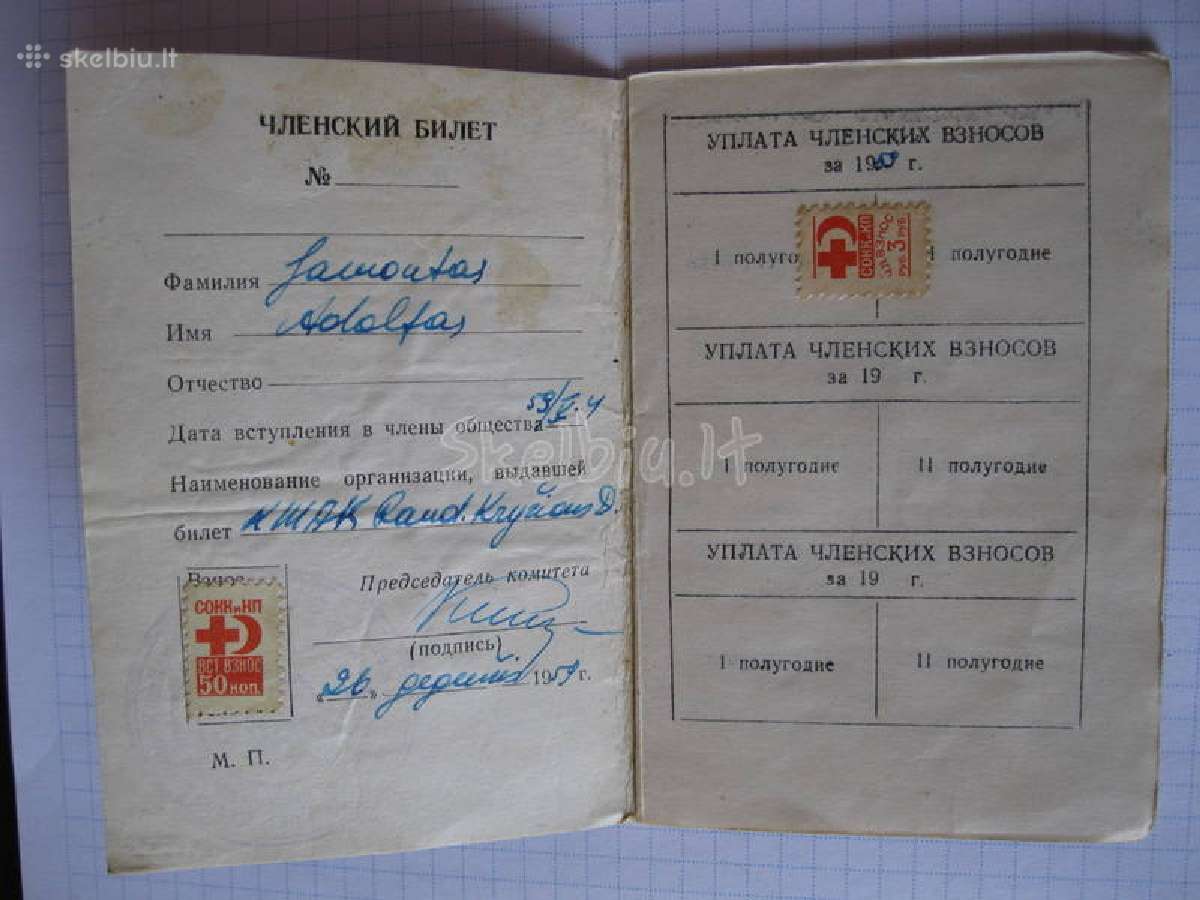 skelbiu.lt
ЧЛЕНСКИЙ БИЛЕТ
№
Фамилия Jamontas
Имя Adolfas
Отчество
Дата вступления в члены общества 59/V.4
Наименование организации, выдавшей
билет Raud. Kryžiaus D.
Взнос
Председатель комитета
СОКК и КП
ВСТ. ВЗНОС
50 КОП.
(подпись)
„26„ 1959 г.
М. П.
УПЛАТА ЧЛЕНСКИХ ВЗНОСОВ
за 1959 г.
I полуго
СОКК и КП
ЧЛ. ВЗНОС
РУБ. 3 РУБ.
II полугодие
УПЛАТА ЧЛЕНСКИХ ВЗНОСОВ
за 19 г.
I полугодие
II полугодие
УПЛАТА ЧЛЕНСКИХ ВЗНОСОВ
за 19 г.
I полугодие
II полугодие
skelbiu.lt